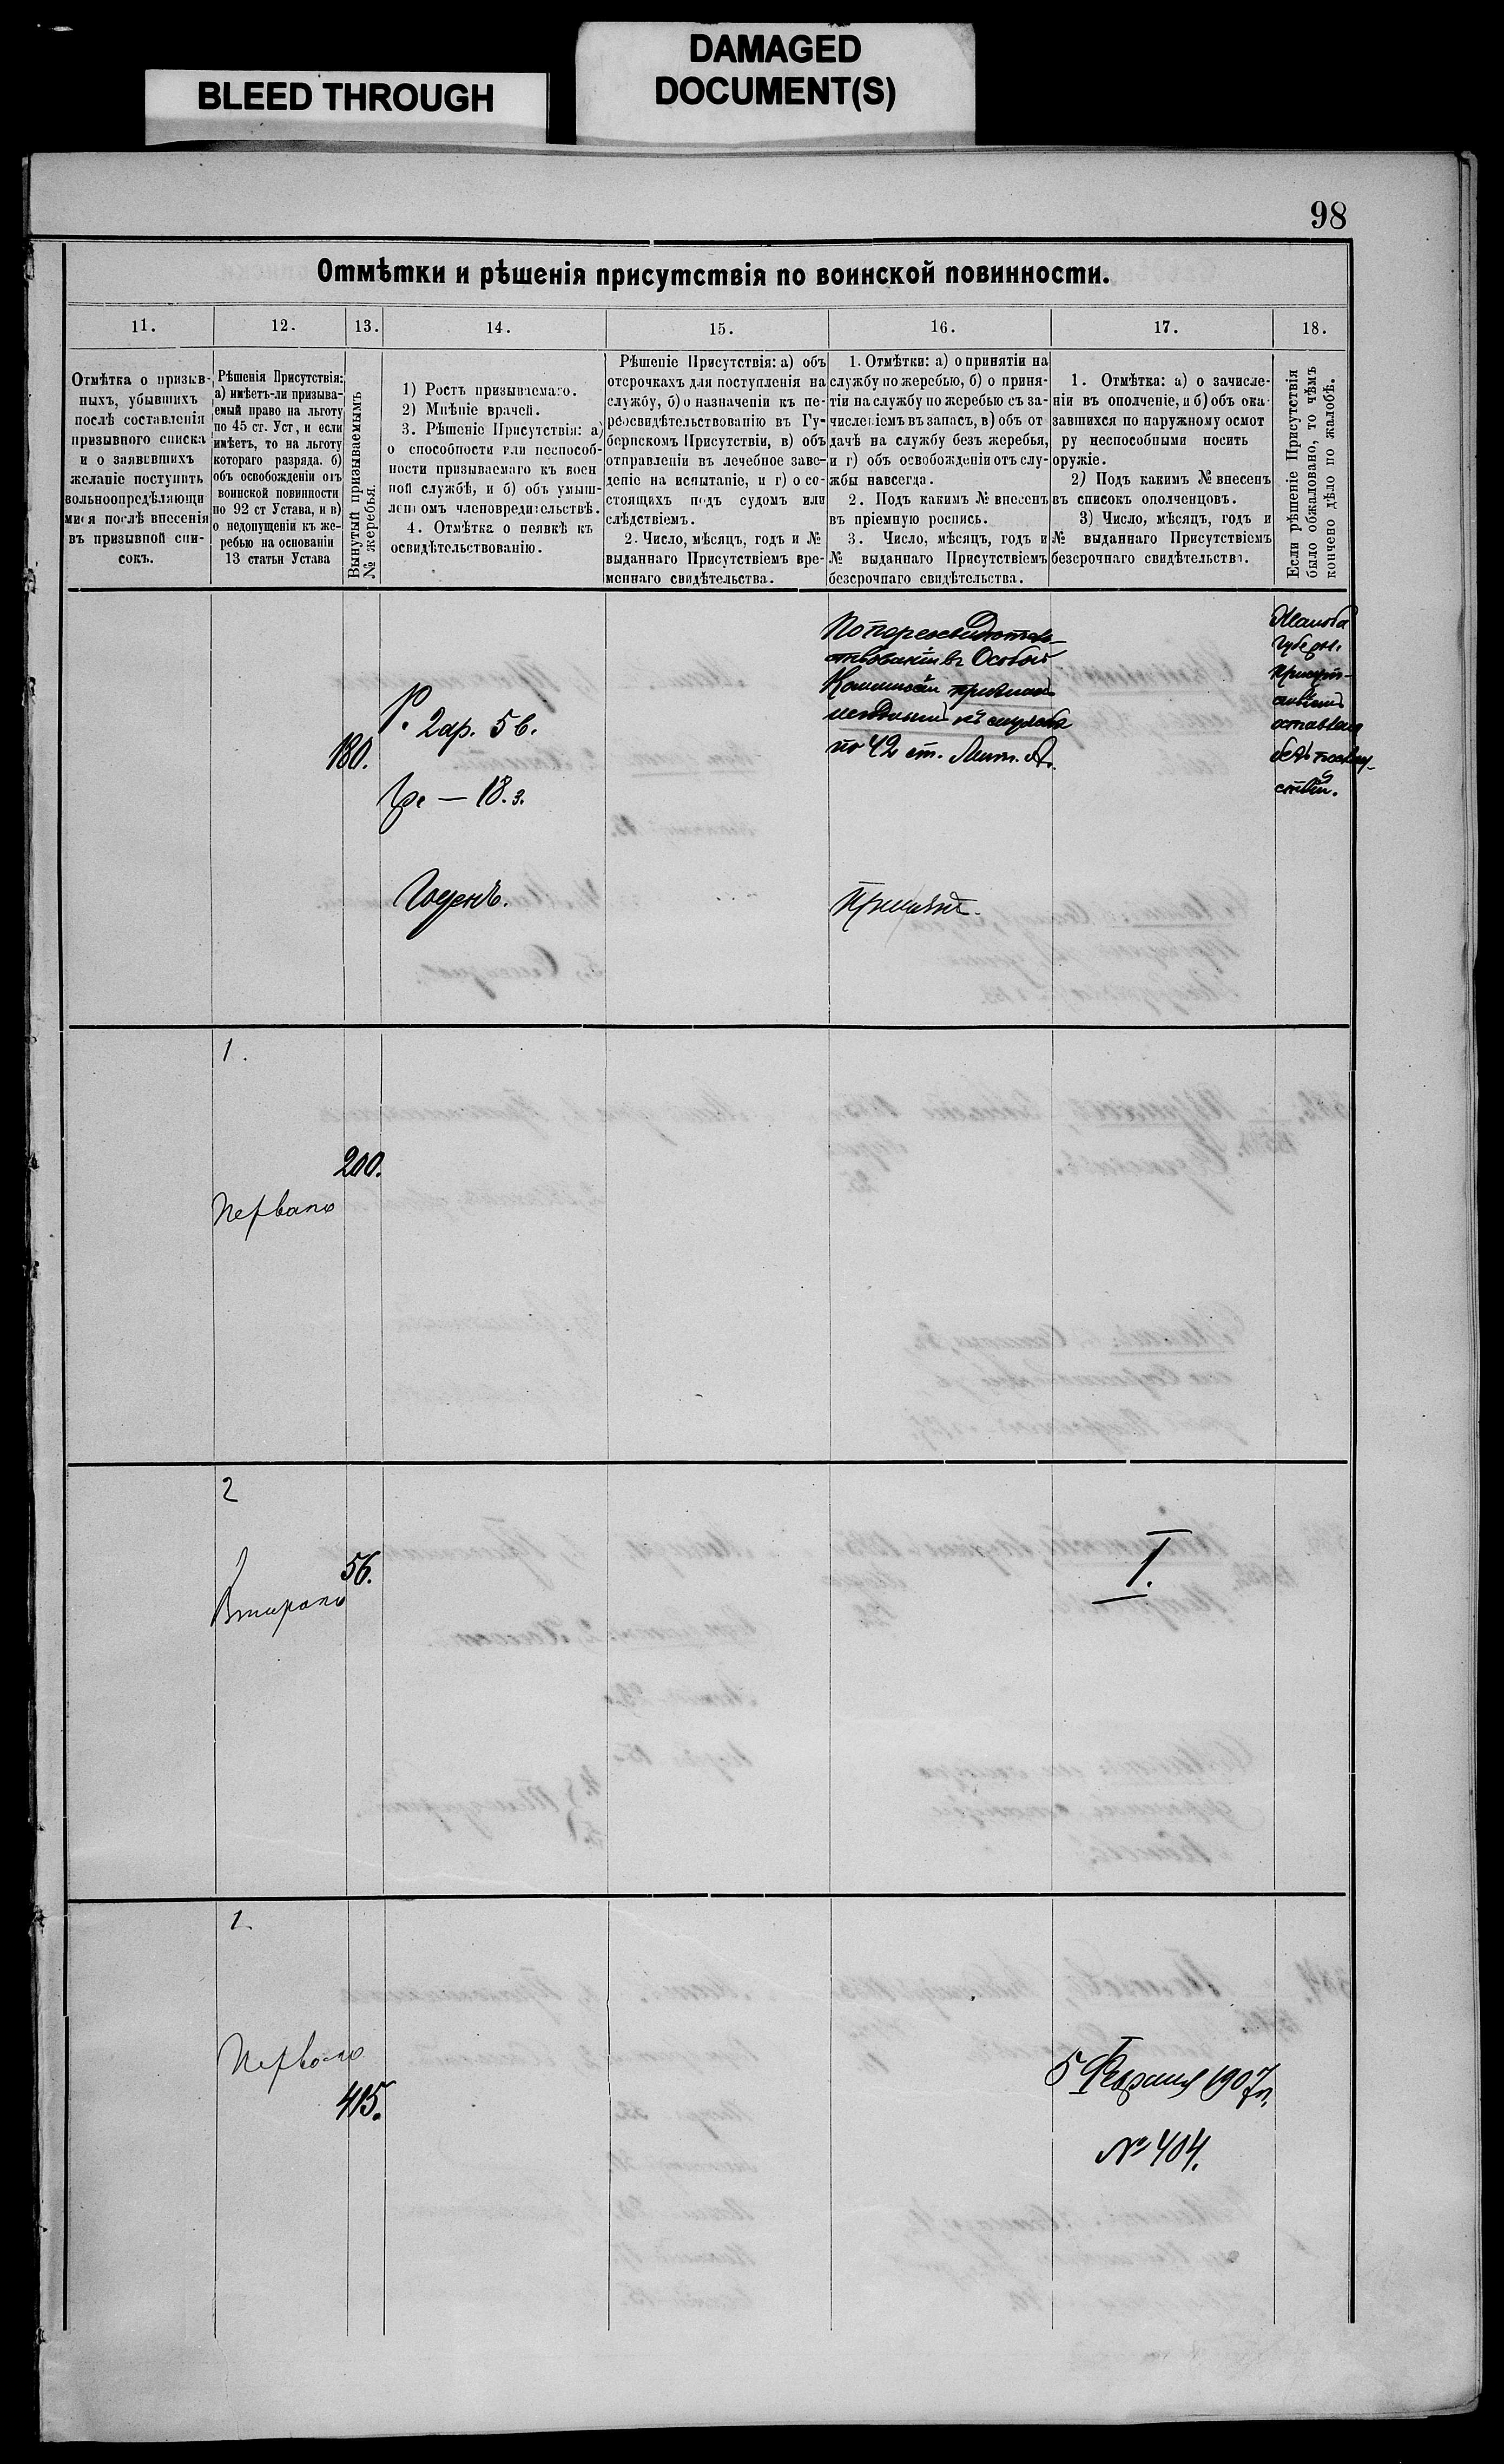 BLEED THROUGH
DAMAGED
DOCUMENT(S)
98
Отмѣтки и рѣшенія присутствія по воинской повинности.
11.
12.
13.
14.
15.
16.
17.
18.
Отмѣтка о призыв-
ныхъ, убывшихъ
послѣ составленія
призывного списка
и о заявившихъ
желаніе поступить
вольноопредѣляющи
мися послѣ внесенія
въ призывной спи-
сокъ.
Рѣшенія Присутствія:
а) имѣетъ-ли призыва-
емый право на льготу
по 45 ст. Уст, и если
имѣетъ, то на льготу
котораго разряда. б)
объ освобожденіи отъ
воинской повинности
по 92 ст Устава, и в)
о недопущеніи къ же-
ребью на основаніи
13 статьи Устава
Вынутый призываемымъ
№ жеребья.
1) Ростъ призываемаго.
2) Мнѣніе врачей.
3. Рѣшеніе Присутствія: а)
о способности или неспособ-
ности призываемаго къ воен
ной службѣ, и б) объ умыш-
леномъ членовредительствѣ.
4. Отмѣтка о неявкѣ къ
освидѣтельствованію.
Рѣшеніе Присутствія: а) объ
отсрочкахъ для поступленія на
службу, б) о назначеніи къ пе-
реосвидѣтельствованію въ Гу-
бернскомъ Присутствіи, в) объ
отправленіи въ лечебное заве-
деніе на испытаніе, и г) о со-
стоящихъ подъ судомъ или
слѣдствіемъ.
2. Число, мѣсяцъ, годъ и №
выданнаго Присутствіемъ вре-
меннаго свидѣтельства.
1. Отмѣтки: а) о принятіи на
службу по жеребью, б) о приня-
тіи на службу по жеребью съ за-
численіемъ въ запасъ, в) объ от
дачѣ на службу безъ жеребья,
и г) объ освобожденіи отъ слу-
жбы навсегда.
2. Подъ какимъ № внесенъ
въ пріемную роспись.
3. Число, мѣсяцъ, годъ и
№ выданнаго Присутствіемъ
безсрочнаго свидѣтельства.
1. Отмѣтка: а) о зачисле-
ніи въ ополченіе, и б) объ ока-
завшихся по наружному осмот
ру неспособными носить
оружіе.
2) Подъ какимъ № внесенъ
въ списокъ ополченцовъ.
3) Число, мѣсяцъ, годъ и
№ выданнаго Присутствіемъ
безсрочнаго свидѣтельства.
Если рѣшеніе Присутствія
было обжаловано, то чѣмъ
кончено дѣло по жалобѣ.
180.
Р. 2ар. 5в.
Гр. — 18. з.
Годенъ.
По переосвидѣтель-
ствованіи въ Особой
Коммисіи признанъ
негоднымъ къ службѣ
по 42 ст. Лит. А.
Принятъ.
Жалоба
Губерн.
Присут-
ствіемъ
оставлена
безъ послѣд-
ствій.
1.
200.
Перваго
2
56.
Второго
I.
1.
Перваго
415.
I
5 Февраля 1907 г.
№ 404.